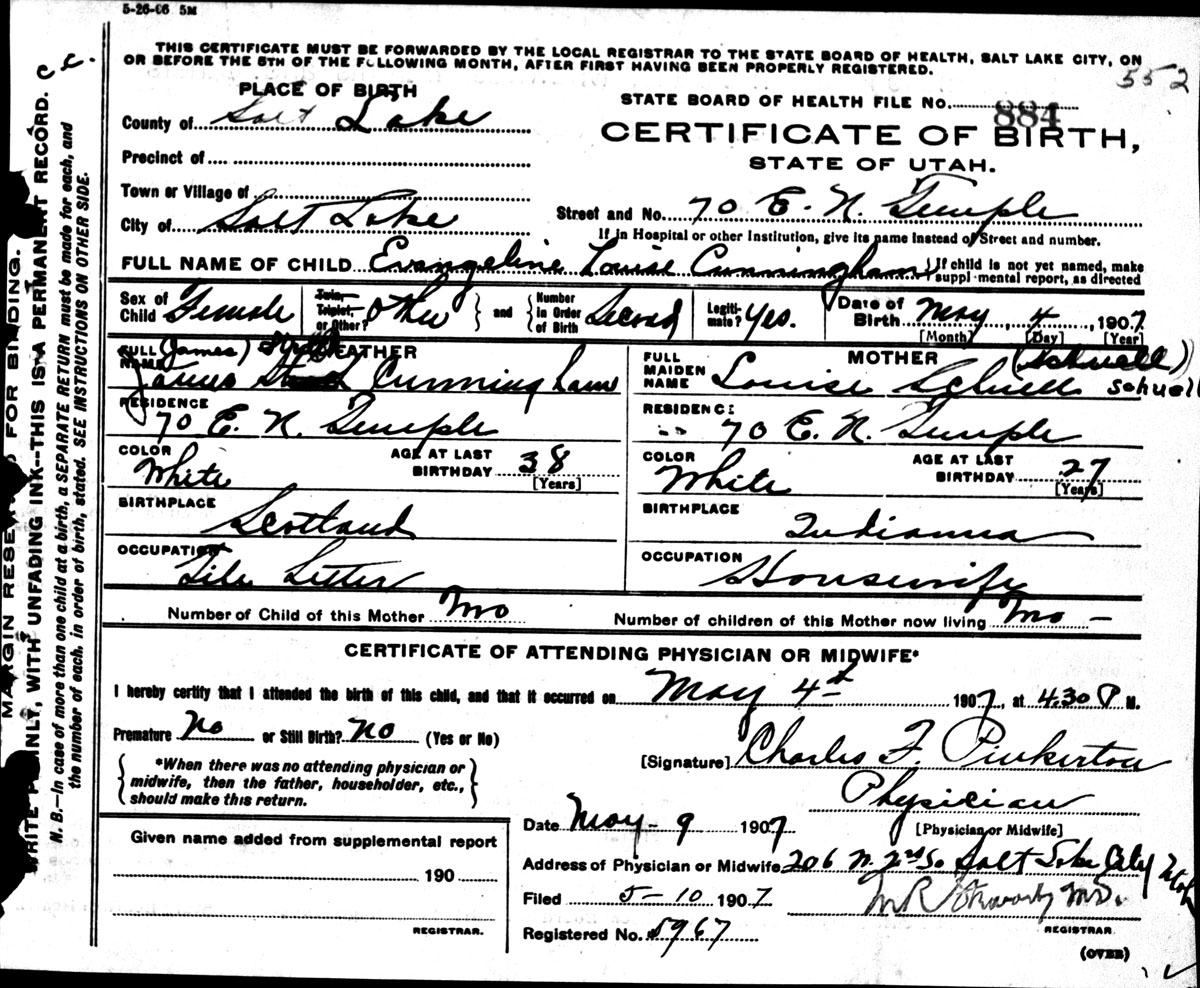 5-26-06 5M
THIS CERTIFICATE MUST BE FORWARDED BY THE LOCAL REGISTRAR TO THE STATE BOARD OF HEALTH, SALT LAKE CITY, ON
OR BEFORE THE 5TH OF THE FOLLOWING MONTH, AFTER FIRST HAVING BEEN PROPERLY REGISTERED.
c.c.
552
PLACE OF BIRTH
STATE BOARD OF HEALTH FILE NO. 884
County of Salt Lake
CERTIFICATE OF BIRTH,
STATE OF UTAH.
Precinct of
Town or Village of
City of Salt Lake
Street and No. 70 E. N. Temple
If in Hospital or other Institution, give its name instead of Street and number.
FULL NAME OF CHILD Evangeline Louise Cunningham
If child is not yet named, make
supplemental report, as directed
Sex of Child Female
Twin, Triplet, or Other? Other
and Number in Order of Birth Second
Legitimate? Yes.
Date of Birth May 4, 1907
[Month] [Day] [Year]
FATHER
FULL NAME (James) James Cunningham
RESIDENCE 70 E. N. Temple
COLOR White
AGE AT LAST BIRTHDAY 38
[Years]
BIRTHPLACE Scotland
OCCUPATION Tile Setter
MOTHER
FULL MAIDEN NAME Louise Schuell (Schuell) Schuell
RESIDENCE 70 E. N. Temple
COLOR White
AGE AT LAST BIRTHDAY 27
[Years]
BIRTHPLACE Indianna
OCCUPATION Housewife
Number of Child of this Mother
Number of children of this Mother now living
CERTIFICATE OF ATTENDING PHYSICIAN OR MIDWIFE*
I hereby certify that I attended the birth of this child, and that it occurred on May 4th 1907, at 4.30 P M.
Premature No or Still Birth? No (Yes or No)
*When there was no attending physician or
midwife, then the father, householder, etc.,
should make this return.
[Signature] Charles F. Pinkerton
Physician
[Physician or Midwife]
Date May-9 1907
Given name added from supplemental report
190
REGISTRAR.
Address of Physician or Midwife 206 N. 2nd So. Salt Lake City Utah
Filed 5-10 1907
M.D.
REGISTRAR.
Registered No. 5967
(OVER)
MARGIN RESERVED FOR BINDING.
WRITE PLAINLY, WITH UNFADING INK--THIS IS A PERMANENT RECORD.
N. B.--In case of more than one child at a birth, a SEPARATE RETURN must be made for each, and
the number of each, in order of birth, stated. SEE INSTRUCTIONS ON OTHER SIDE.